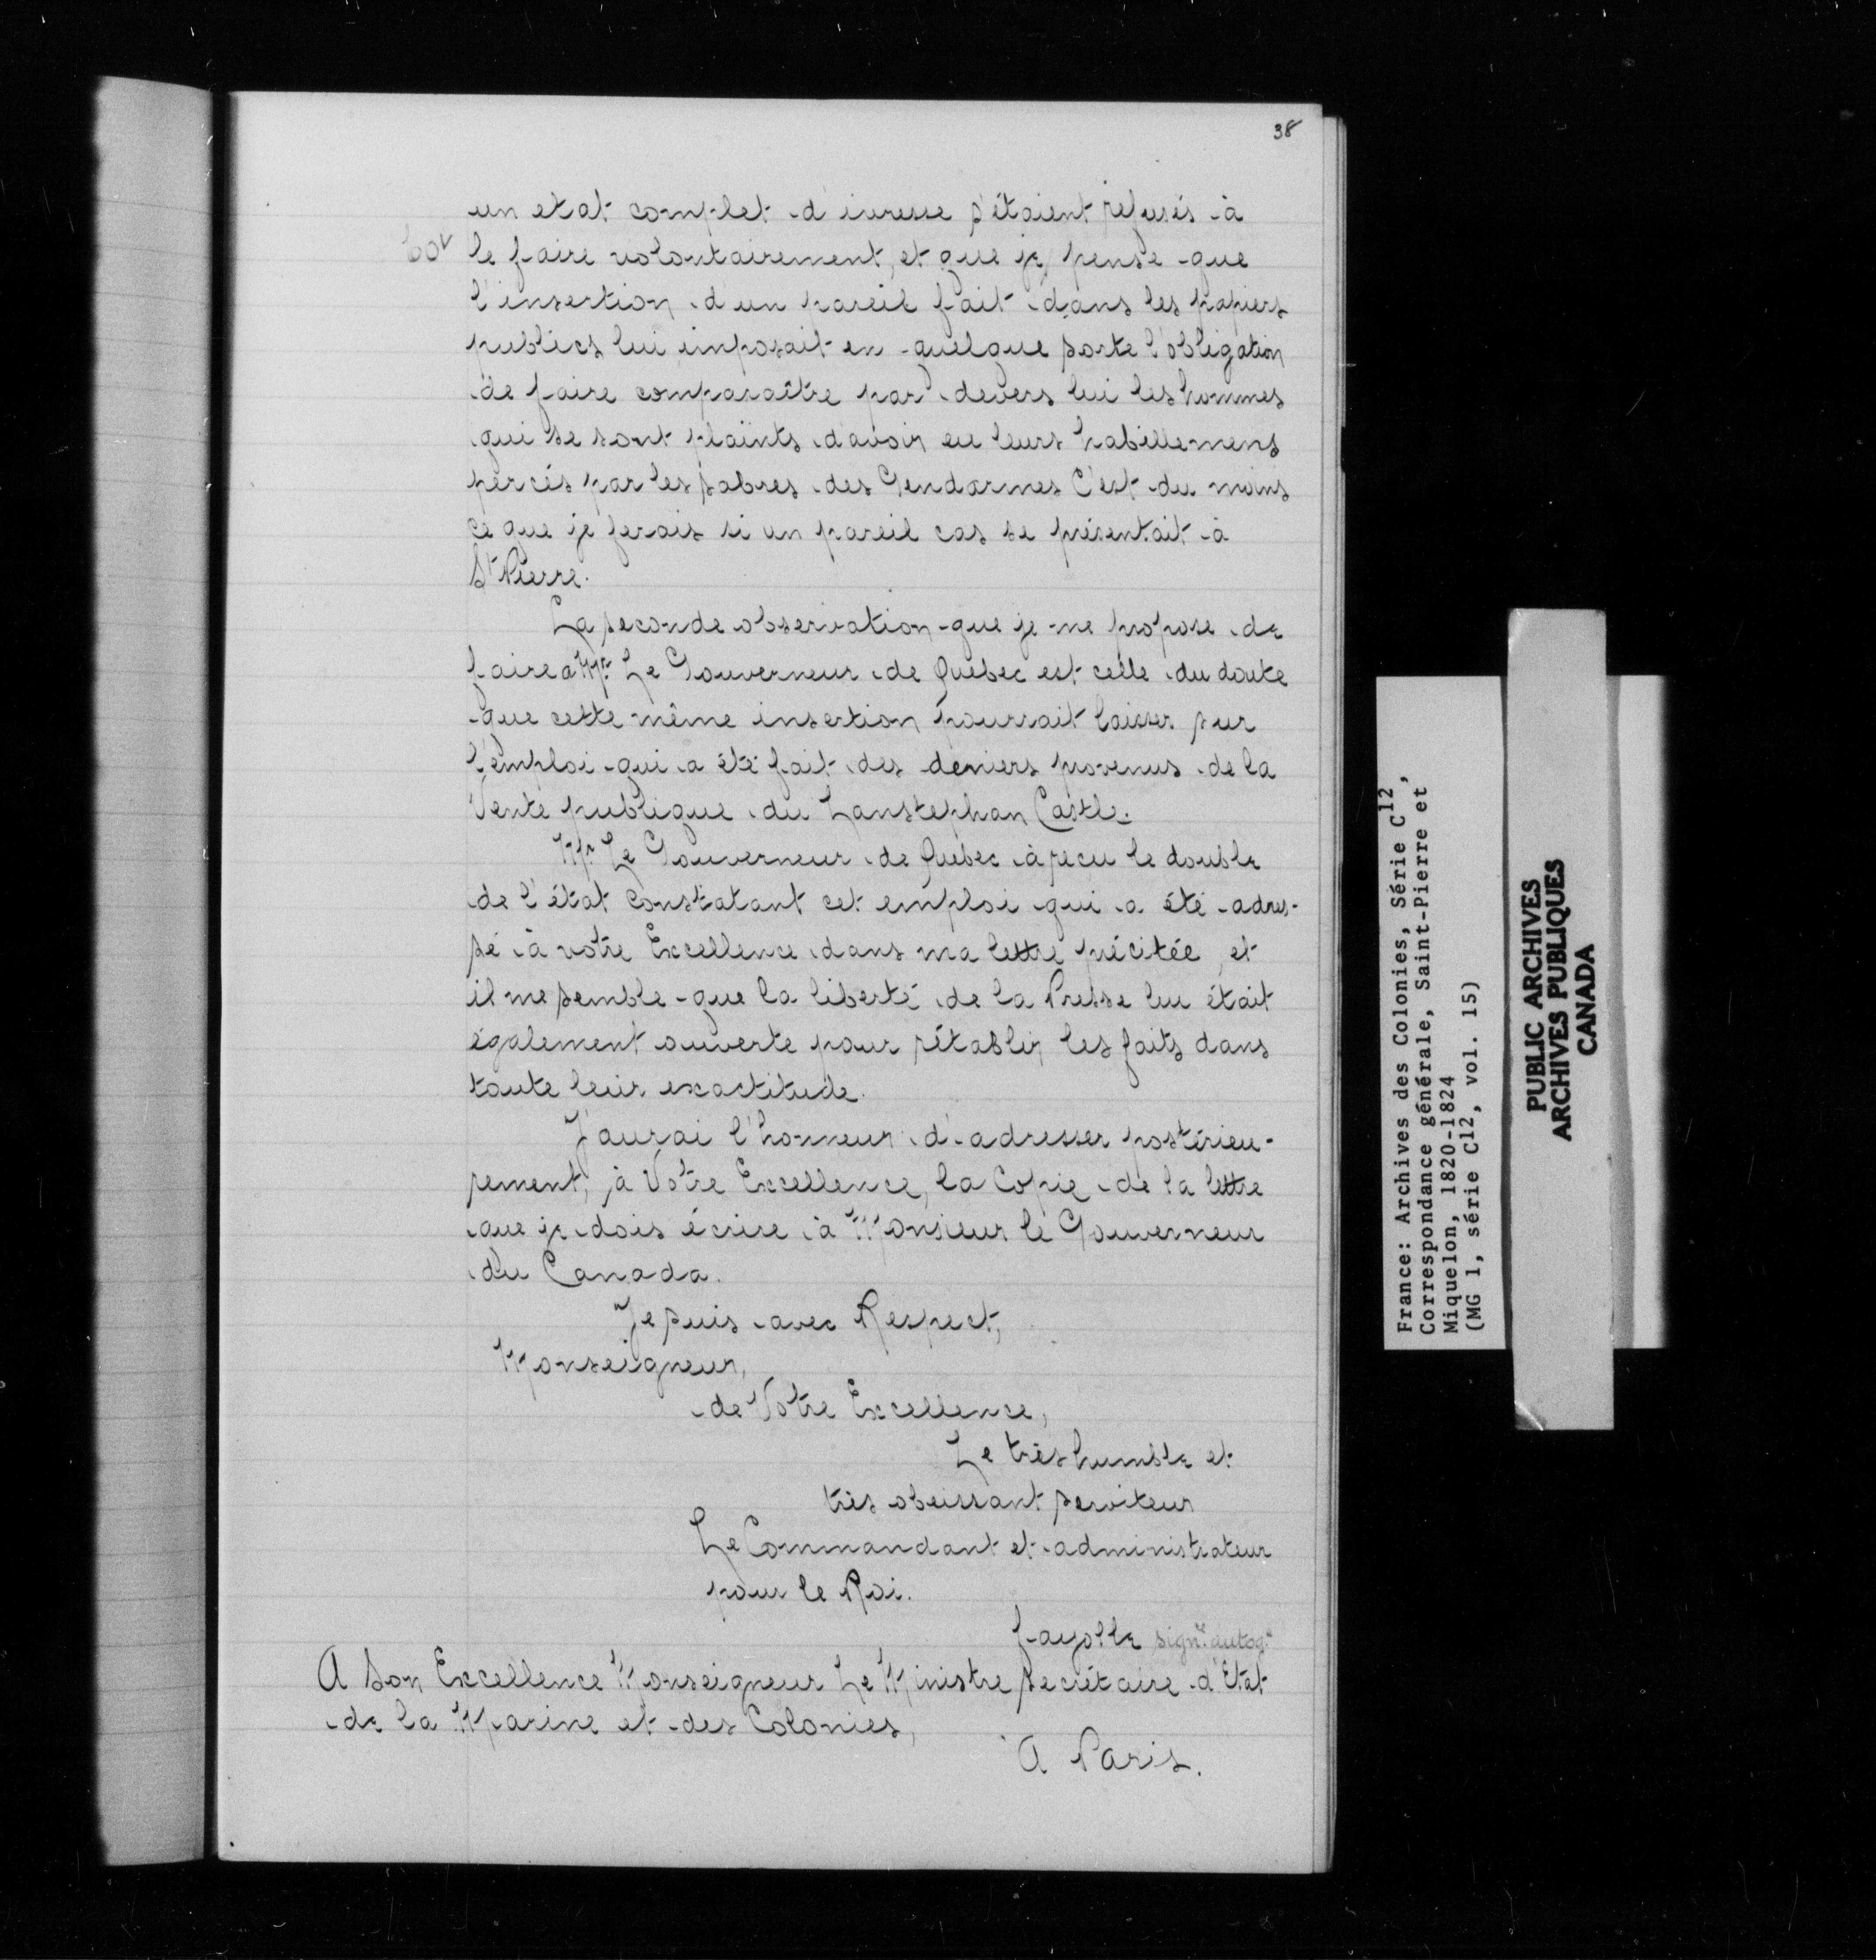 38
un etat complet d'ivresse s'étaient refusés à
60v
le faire volontairement, et que je pense que
l'insertion d'un pareil fait dans les papiers
publics lui imposait en quelque sorte l'obligation
de faire comparaître par devers lui les hommes
qui se sont plaints d'avoir eu leurs habillemens
percés par les sabres des Gendarmes C'est du moins
ce que je ferais si un pareil cas se présentait à
St Pierre.
La seconde observation que je me propose de
faire a Mr. Le Gouverneur de Québec est celle du doute
que cette même insertion pourrait laisser sur
l'emploi qui a été fait des deniers provenus de la
Vente publique du Lanstephan Castle.
Mr. Le Gouverneur de Québec à recu le double
de l'état constatant cet emploi qui a été adres-
sé à votre Excellence dans ma lettre précitée, et
il me semble que la liberté de la Presse lui était
également ouverte pour rétablir les faits dans
toute leur exactitude.
J'aurai l'honneur d'adresser postérieu-
rement, à Votre Excellence, la Copie de la lettre
que je dois écrire à Monsieur le Gouverneur
du Canada.
Je suis avec Respect,
Monseigneur,
de Votre Excellence,
Le très humble et
très obeissant serviteur
Le Commandant et administrateur
pour le Roi.
fayolle signre autoge
A Son Excellence Monseigneur Le Ministre Secrétaire d'Etat
de la Marine et des Colonies,
A Paris.
France: Archives des Colonies, Série C12,
Correspondance générale, Saint-Pierre et
Miquelon, 1820-1824
(MG 1, série C12, vol. 15)
PUBLIC ARCHIVES
ARCHIVES PUBLIQUES
CANADA